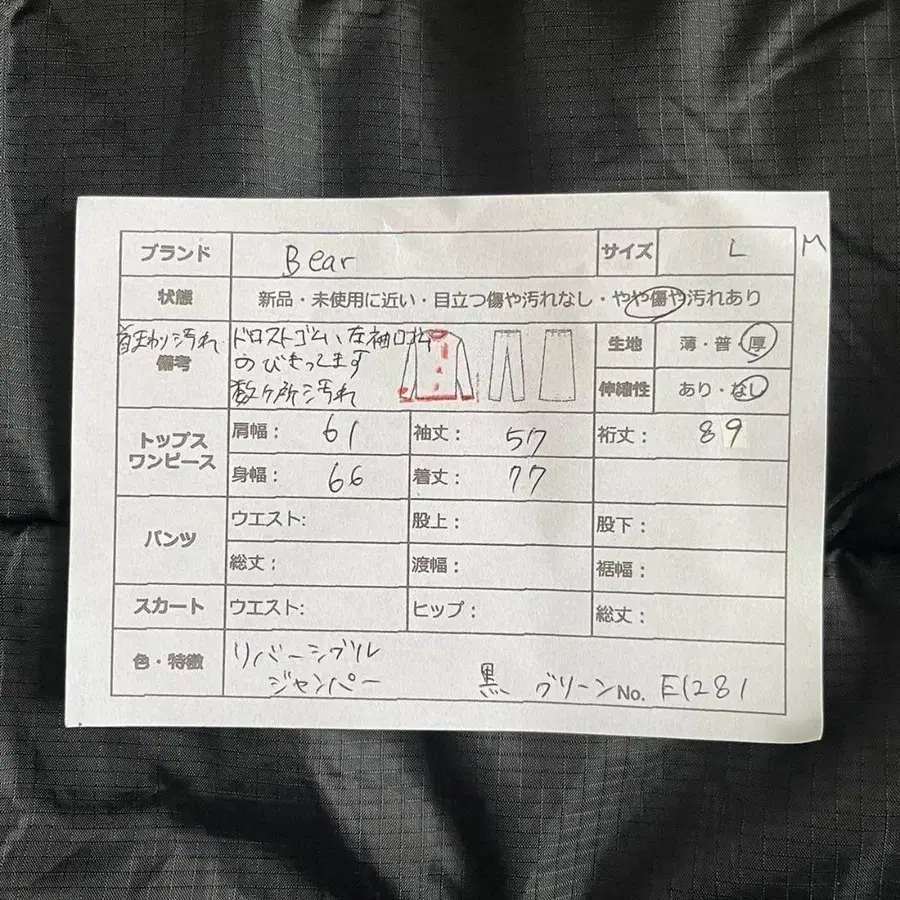 ブランド Bear サイズ L M
状態 新品・未使用に近い・目立つ傷や汚れなし・やや傷や汚れあり
首まわり汚れ
備考
ドロストゴム、左袖口ゴム
のびきってます
数ヶ所汚れ
生地 薄・普・厚
伸縮性 あり・なし
トップス
ワンピース
肩幅: 61 袖丈: 57 裄丈: 89
身幅: 66 着丈: 77
パンツ
ウエスト: 股上: 股下:
総丈: 渡幅: 裾幅:
スカート ウエスト: ヒップ: 総丈:
色・特徴
リバーシブル
ジャンパー 黒 グリーン No. E1281